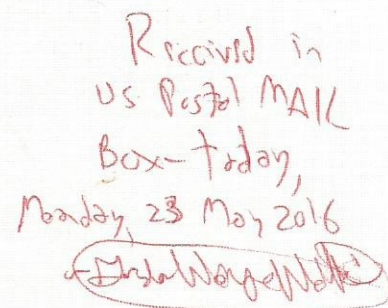 Received in
US Postal MAIL
Box-today,
Monday, 23 May 2016